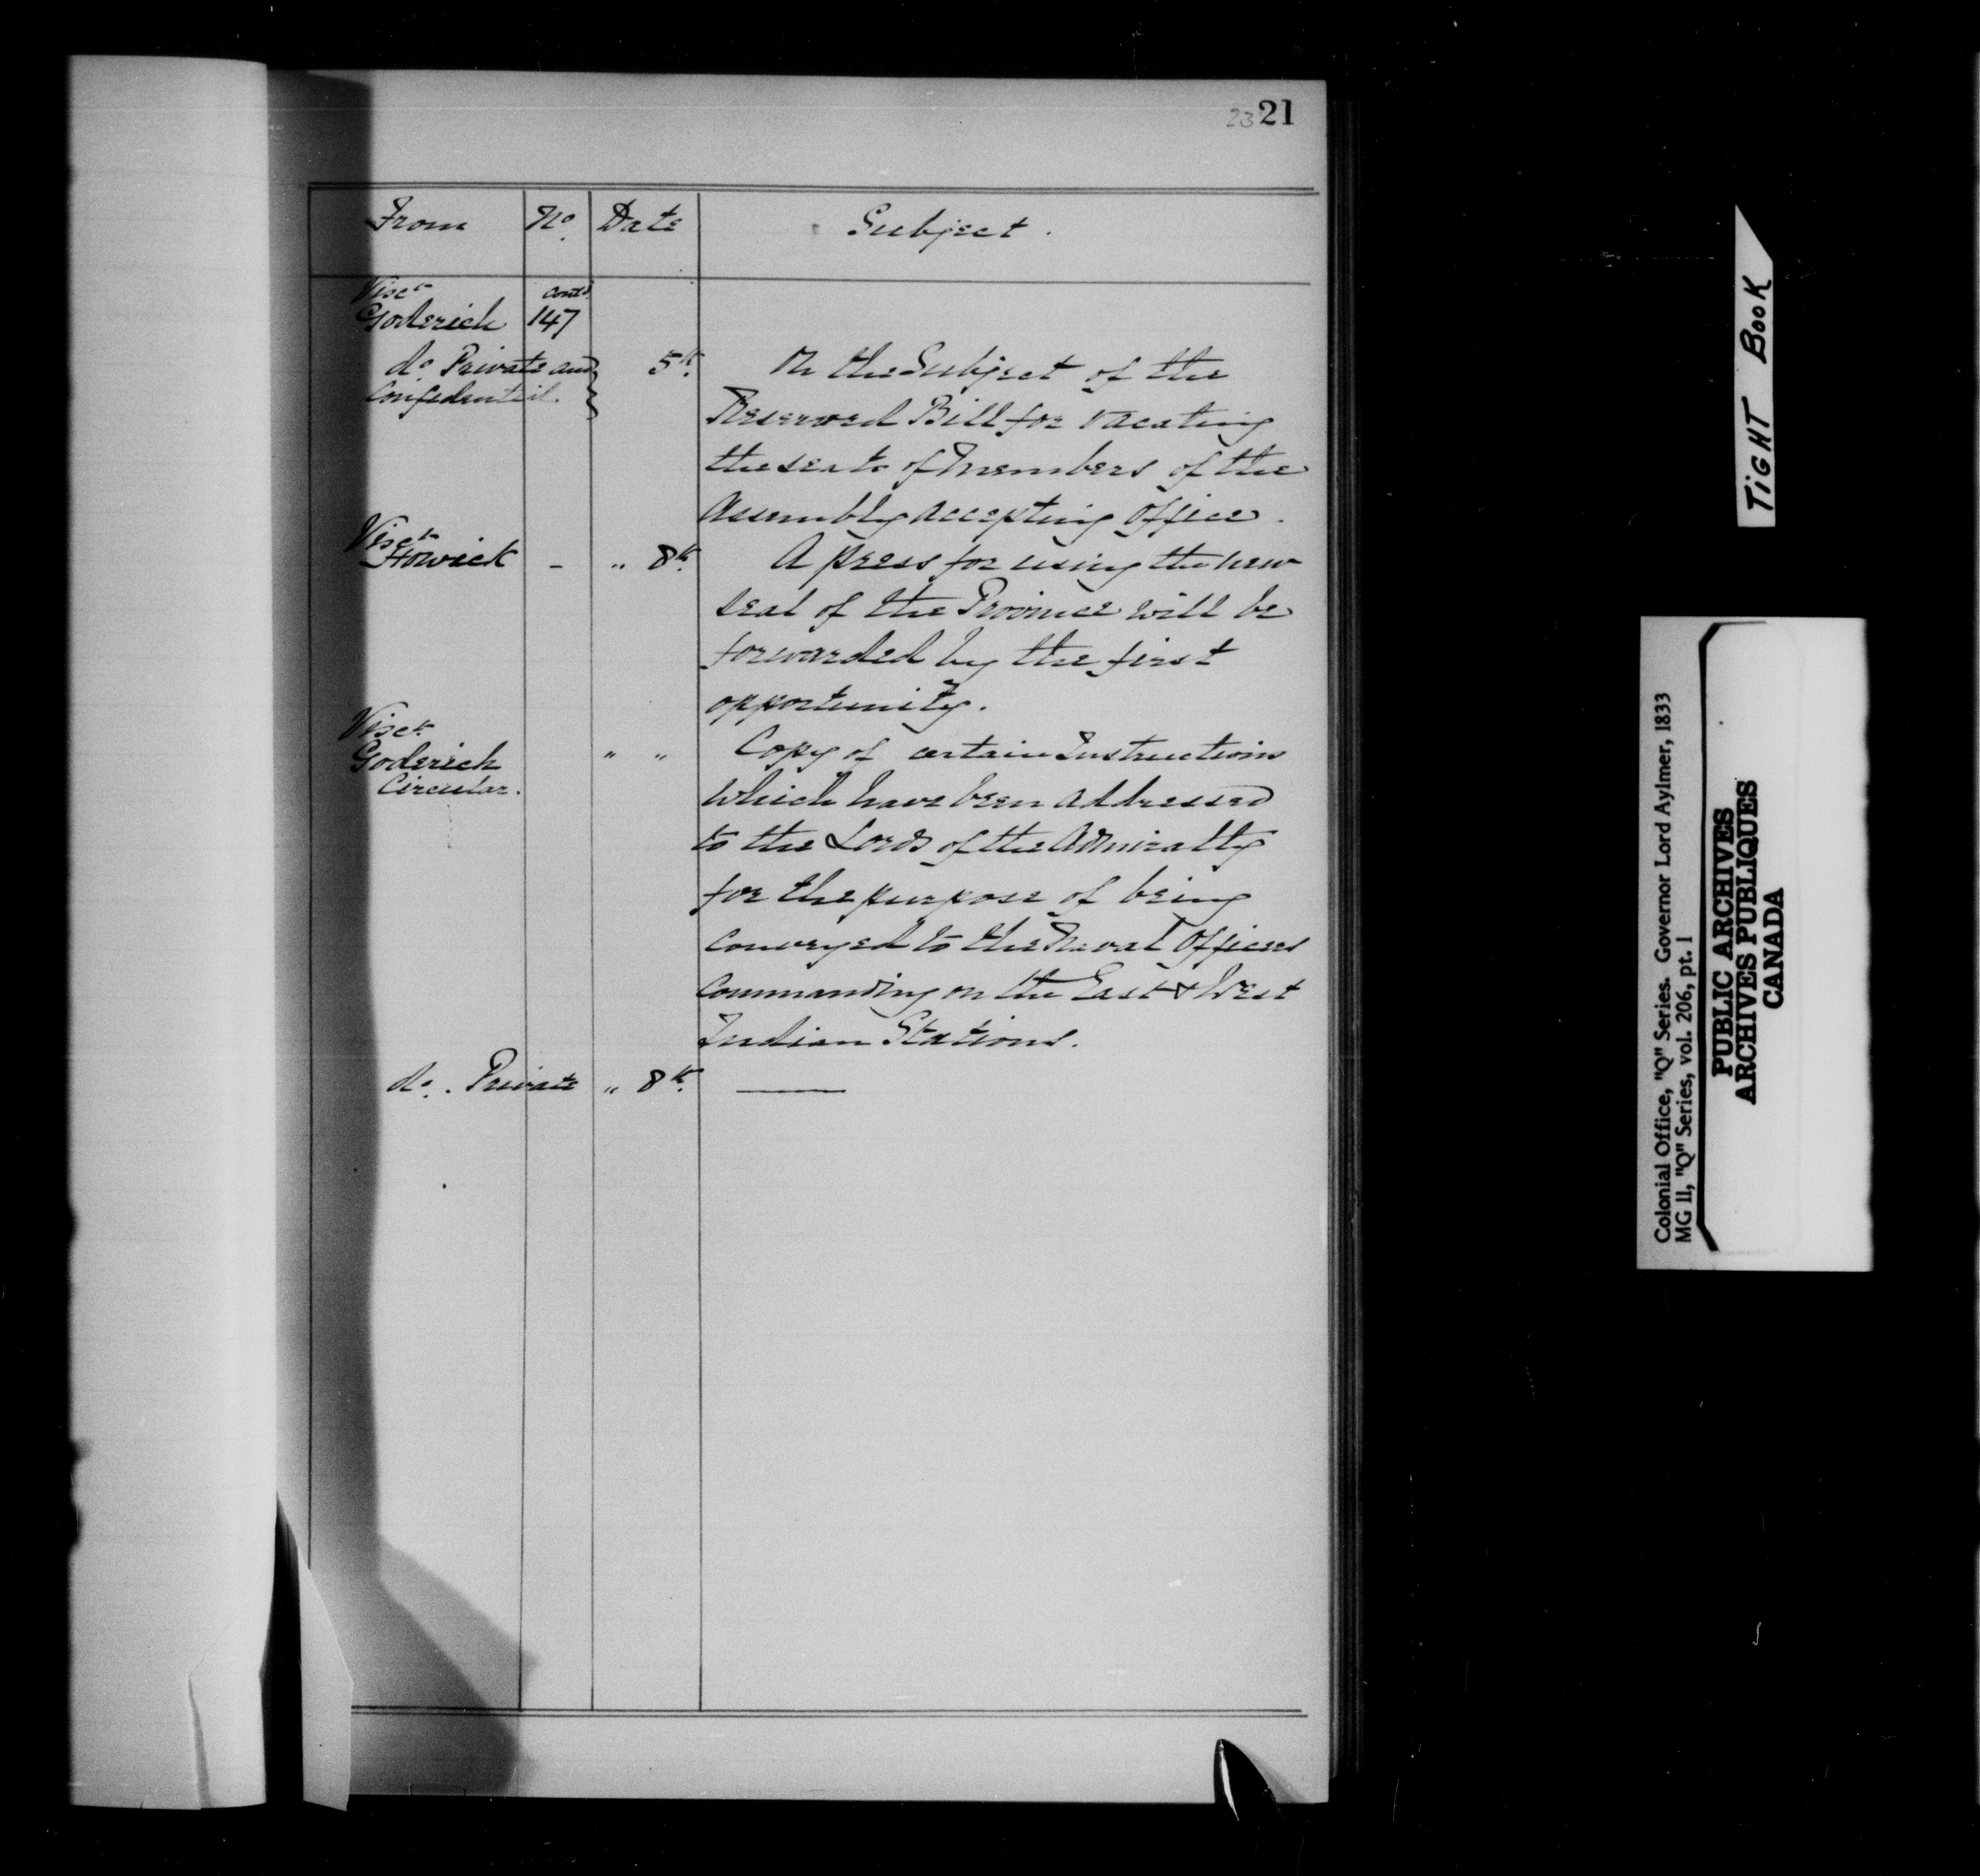 23 21
From No. Date Subject.
Visct Contd.
Goderich 147
do Private and 5th. On the Subject of the
Confidential. Reserved Bill for vacating
the seats of Members of the
Assembly accepting Office.
Visct
Howick - " 8th. A press for using the new
Seal of the Province will be
forwarded by the first
opportunity.
Visct
Goderich " " Copy of certain Instructions
Circular. which have been addressed
to the Lords of the Admiralty
for the purpose of being
conveyed to the Naval Officers
Commanding on the East & West
Indian Stations.
do. Private " 8th. —
TIGHT BOOK
Colonial Office, "Q" Series. Governor Lord Aylmer, 1833
MG 11, "Q" Series, vol. 206, pt. 1
PUBLIC ARCHIVES
ARCHIVES PUBLIQUES
CANADA